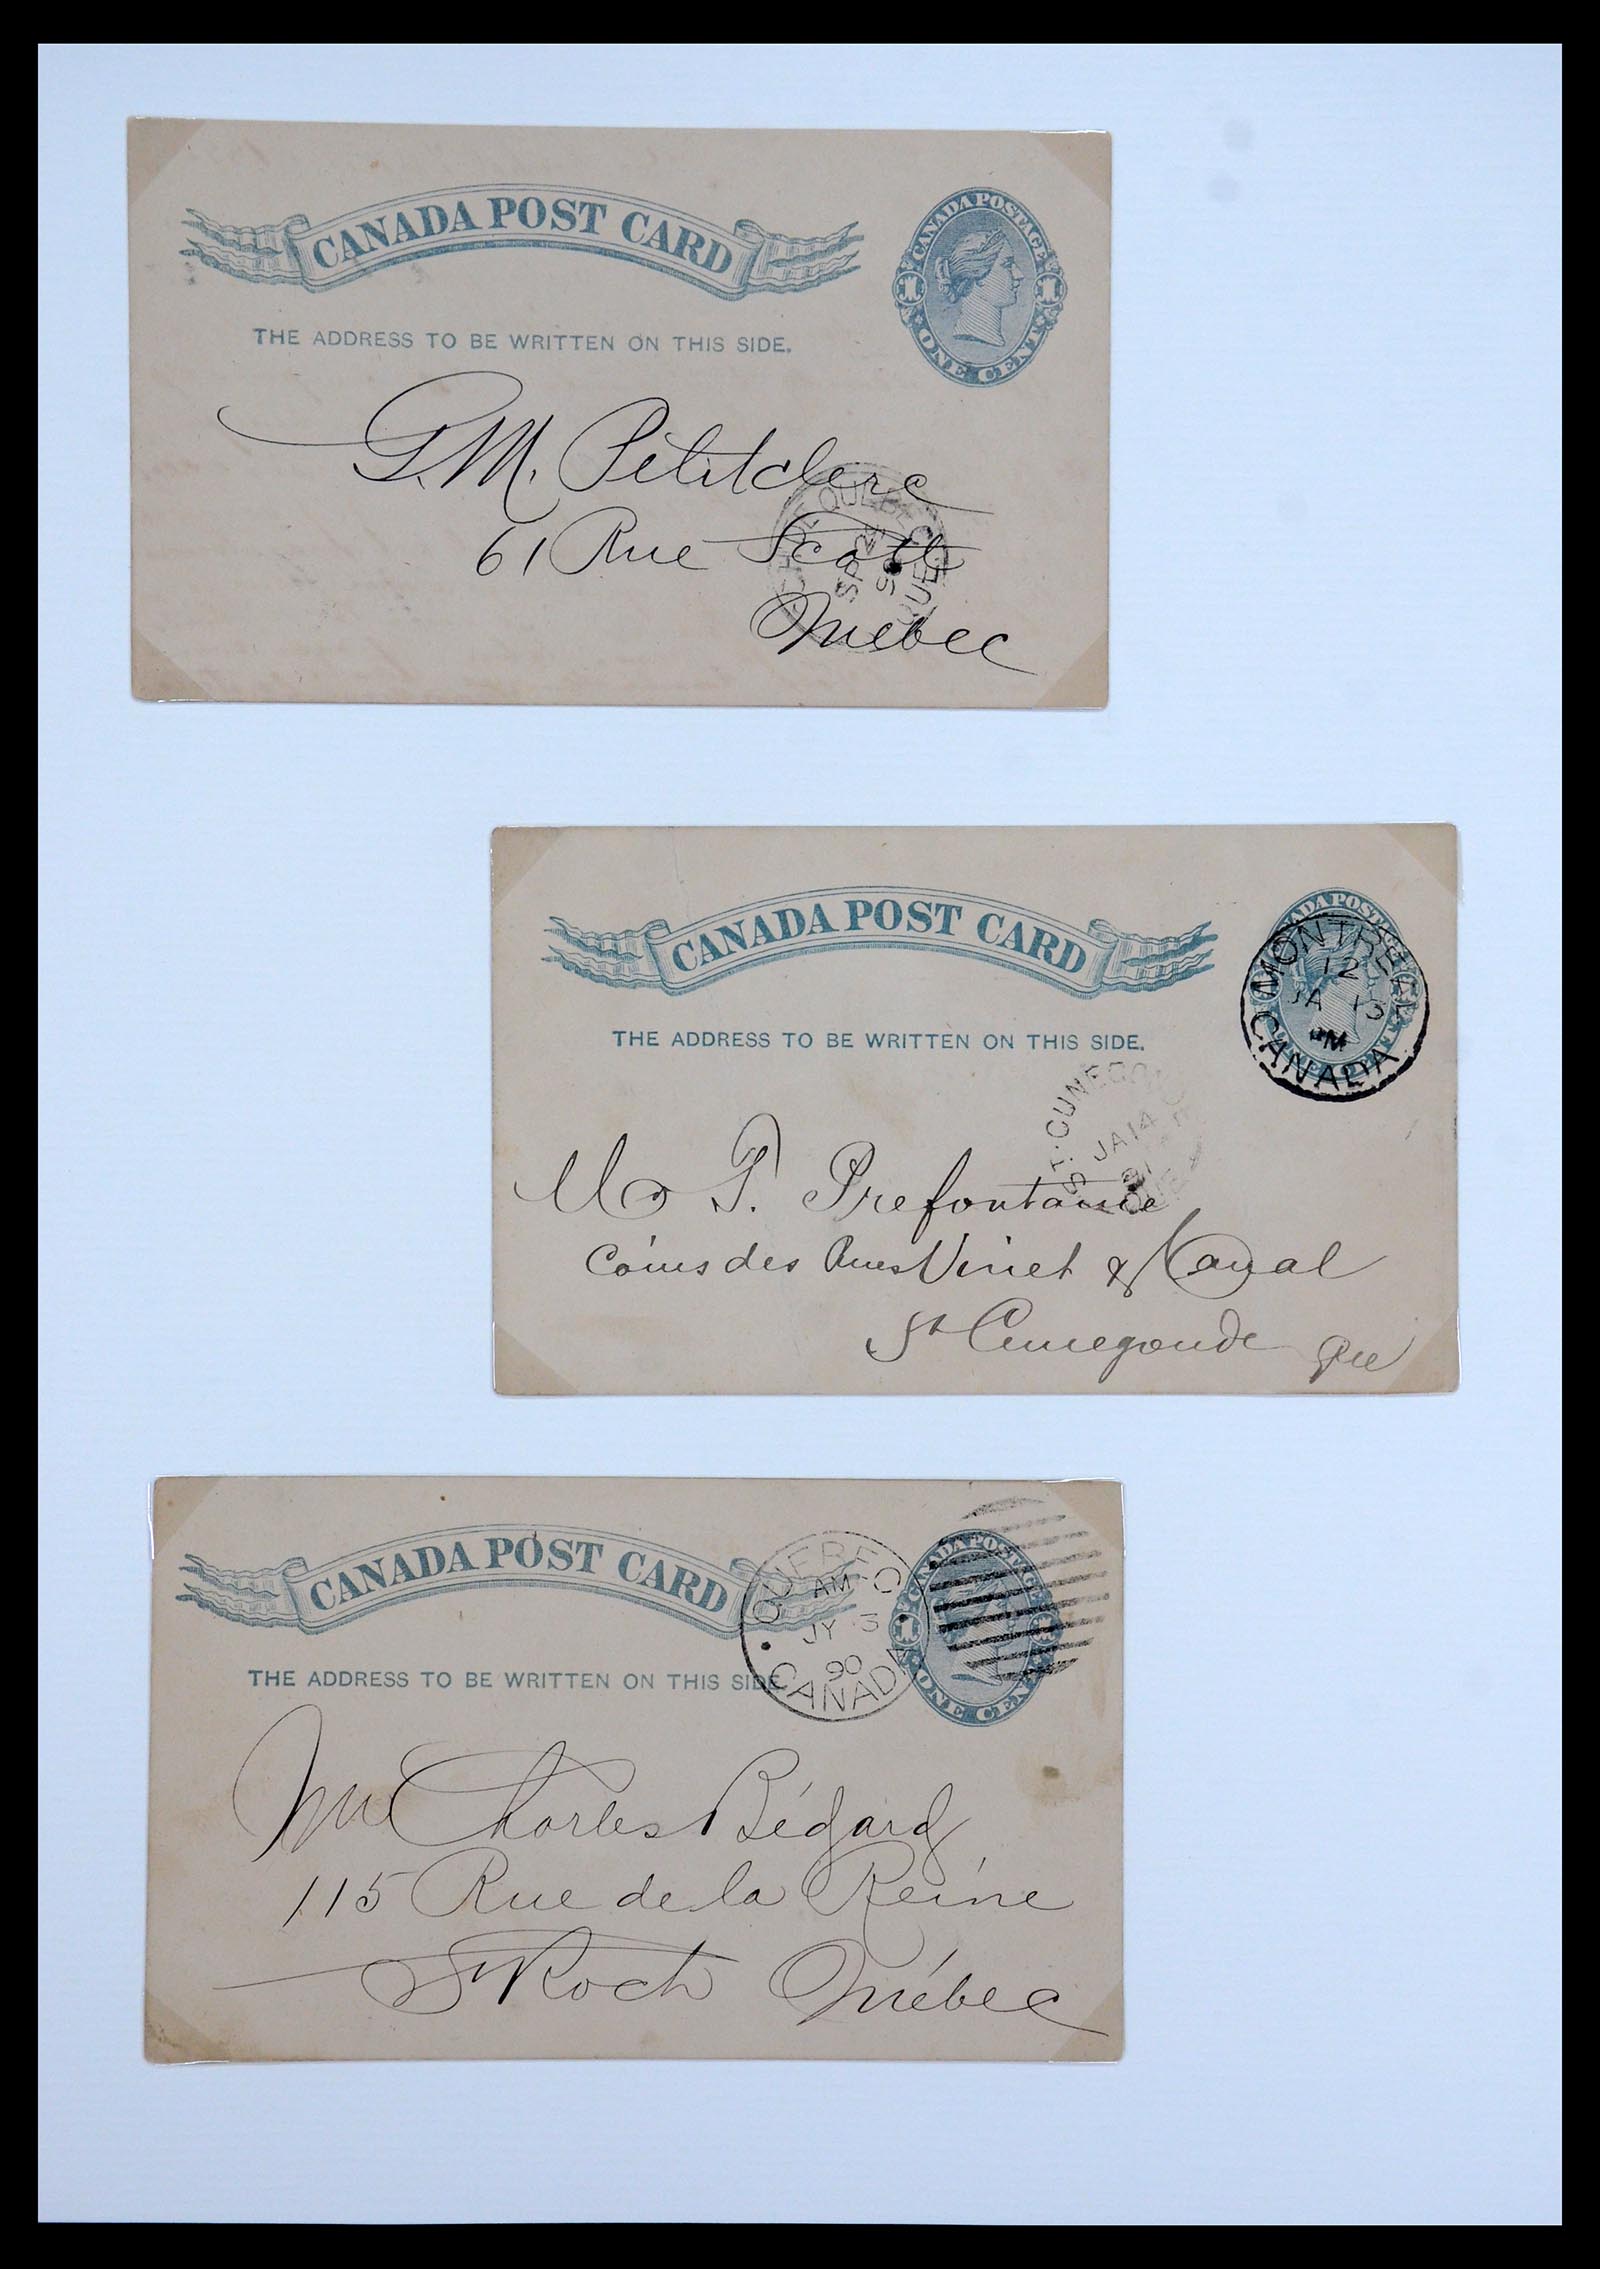 CANADA POST CARD
CANADA POSTAGE
1 1
ONE CENT
THE ADDRESS TO BE WRITTEN ON THIS SIDE.
G.M. Petitclerc
61 Rue Scott
Québec
QUEBEC
SP 24
QUE
CANADA POST CARD
CANADA POSTAGE
MONTREAL
12
JA 13
PM
CANADA
THE ADDRESS TO BE WRITTEN ON THIS SIDE.
ST. CUNEGONDE
JA 14
91
QUE
Mr T. Prefontaine
Coins des Rues Vinet & Canal
St Cunegonde Que
CANADA POST CARD
CANADA POSTAGE
1
ONE CENT
QUEBEC
AM
JY 3
90
CANADA
THE ADDRESS TO BE WRITTEN ON THIS SIDE.
Mr Charles Bédard
115 Rue de la Reine
St Roch Québec